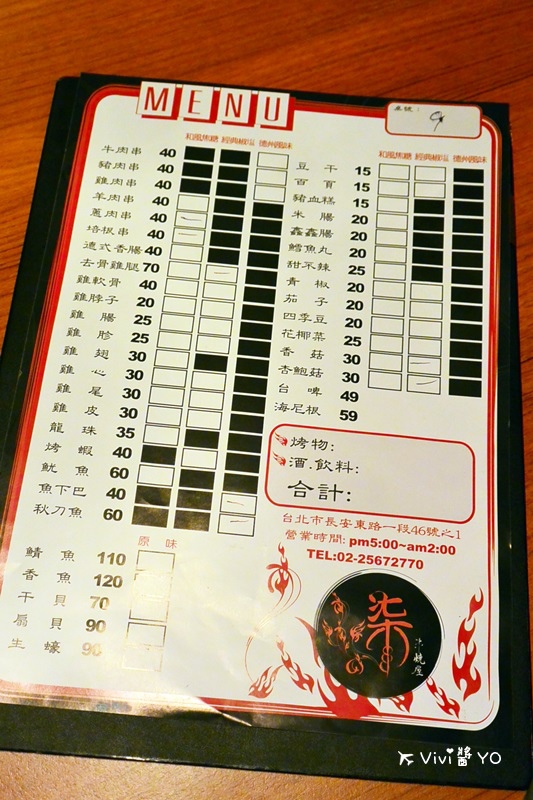 MENU
桌號:
9
和風焦糖 經典椒鹽 德州風味
牛肉串 40
豬肉串 40
雞肉串 40
羊肉串 40
蔥肉串 40
培根串 40
德式香腸 40
去骨雞腿 70
雞軟骨 40
雞脖子 20
雞腸 25
雞胗 25
雞翅 30
雞心 30
雞尾 30
雞皮 30
龍珠 35
烤蝦 40
魷魚 60
魚下巴 40
秋刀魚 60
原味
鯖魚 110
香魚 120
干貝 70
扇貝 90
生蠔 90
和風焦糖 經典椒鹽 德州風味
豆干 15
百頁 15
豬血糕 15
米腸 20
鑫鑫腸 20
鱈魚丸 20
甜不辣 25
青椒 20
茄子 20
四季豆 20
花椰菜 20
香菇 30
杏鮑菇 30
台啤 49
海尼根 59
烤物:
酒.飲料:
合計:
台北市長安東路一段46號之1
營業時間: pm5:00~am2:00
TEL:02-25672770
柒
柒燒屋
Vivi醬YO